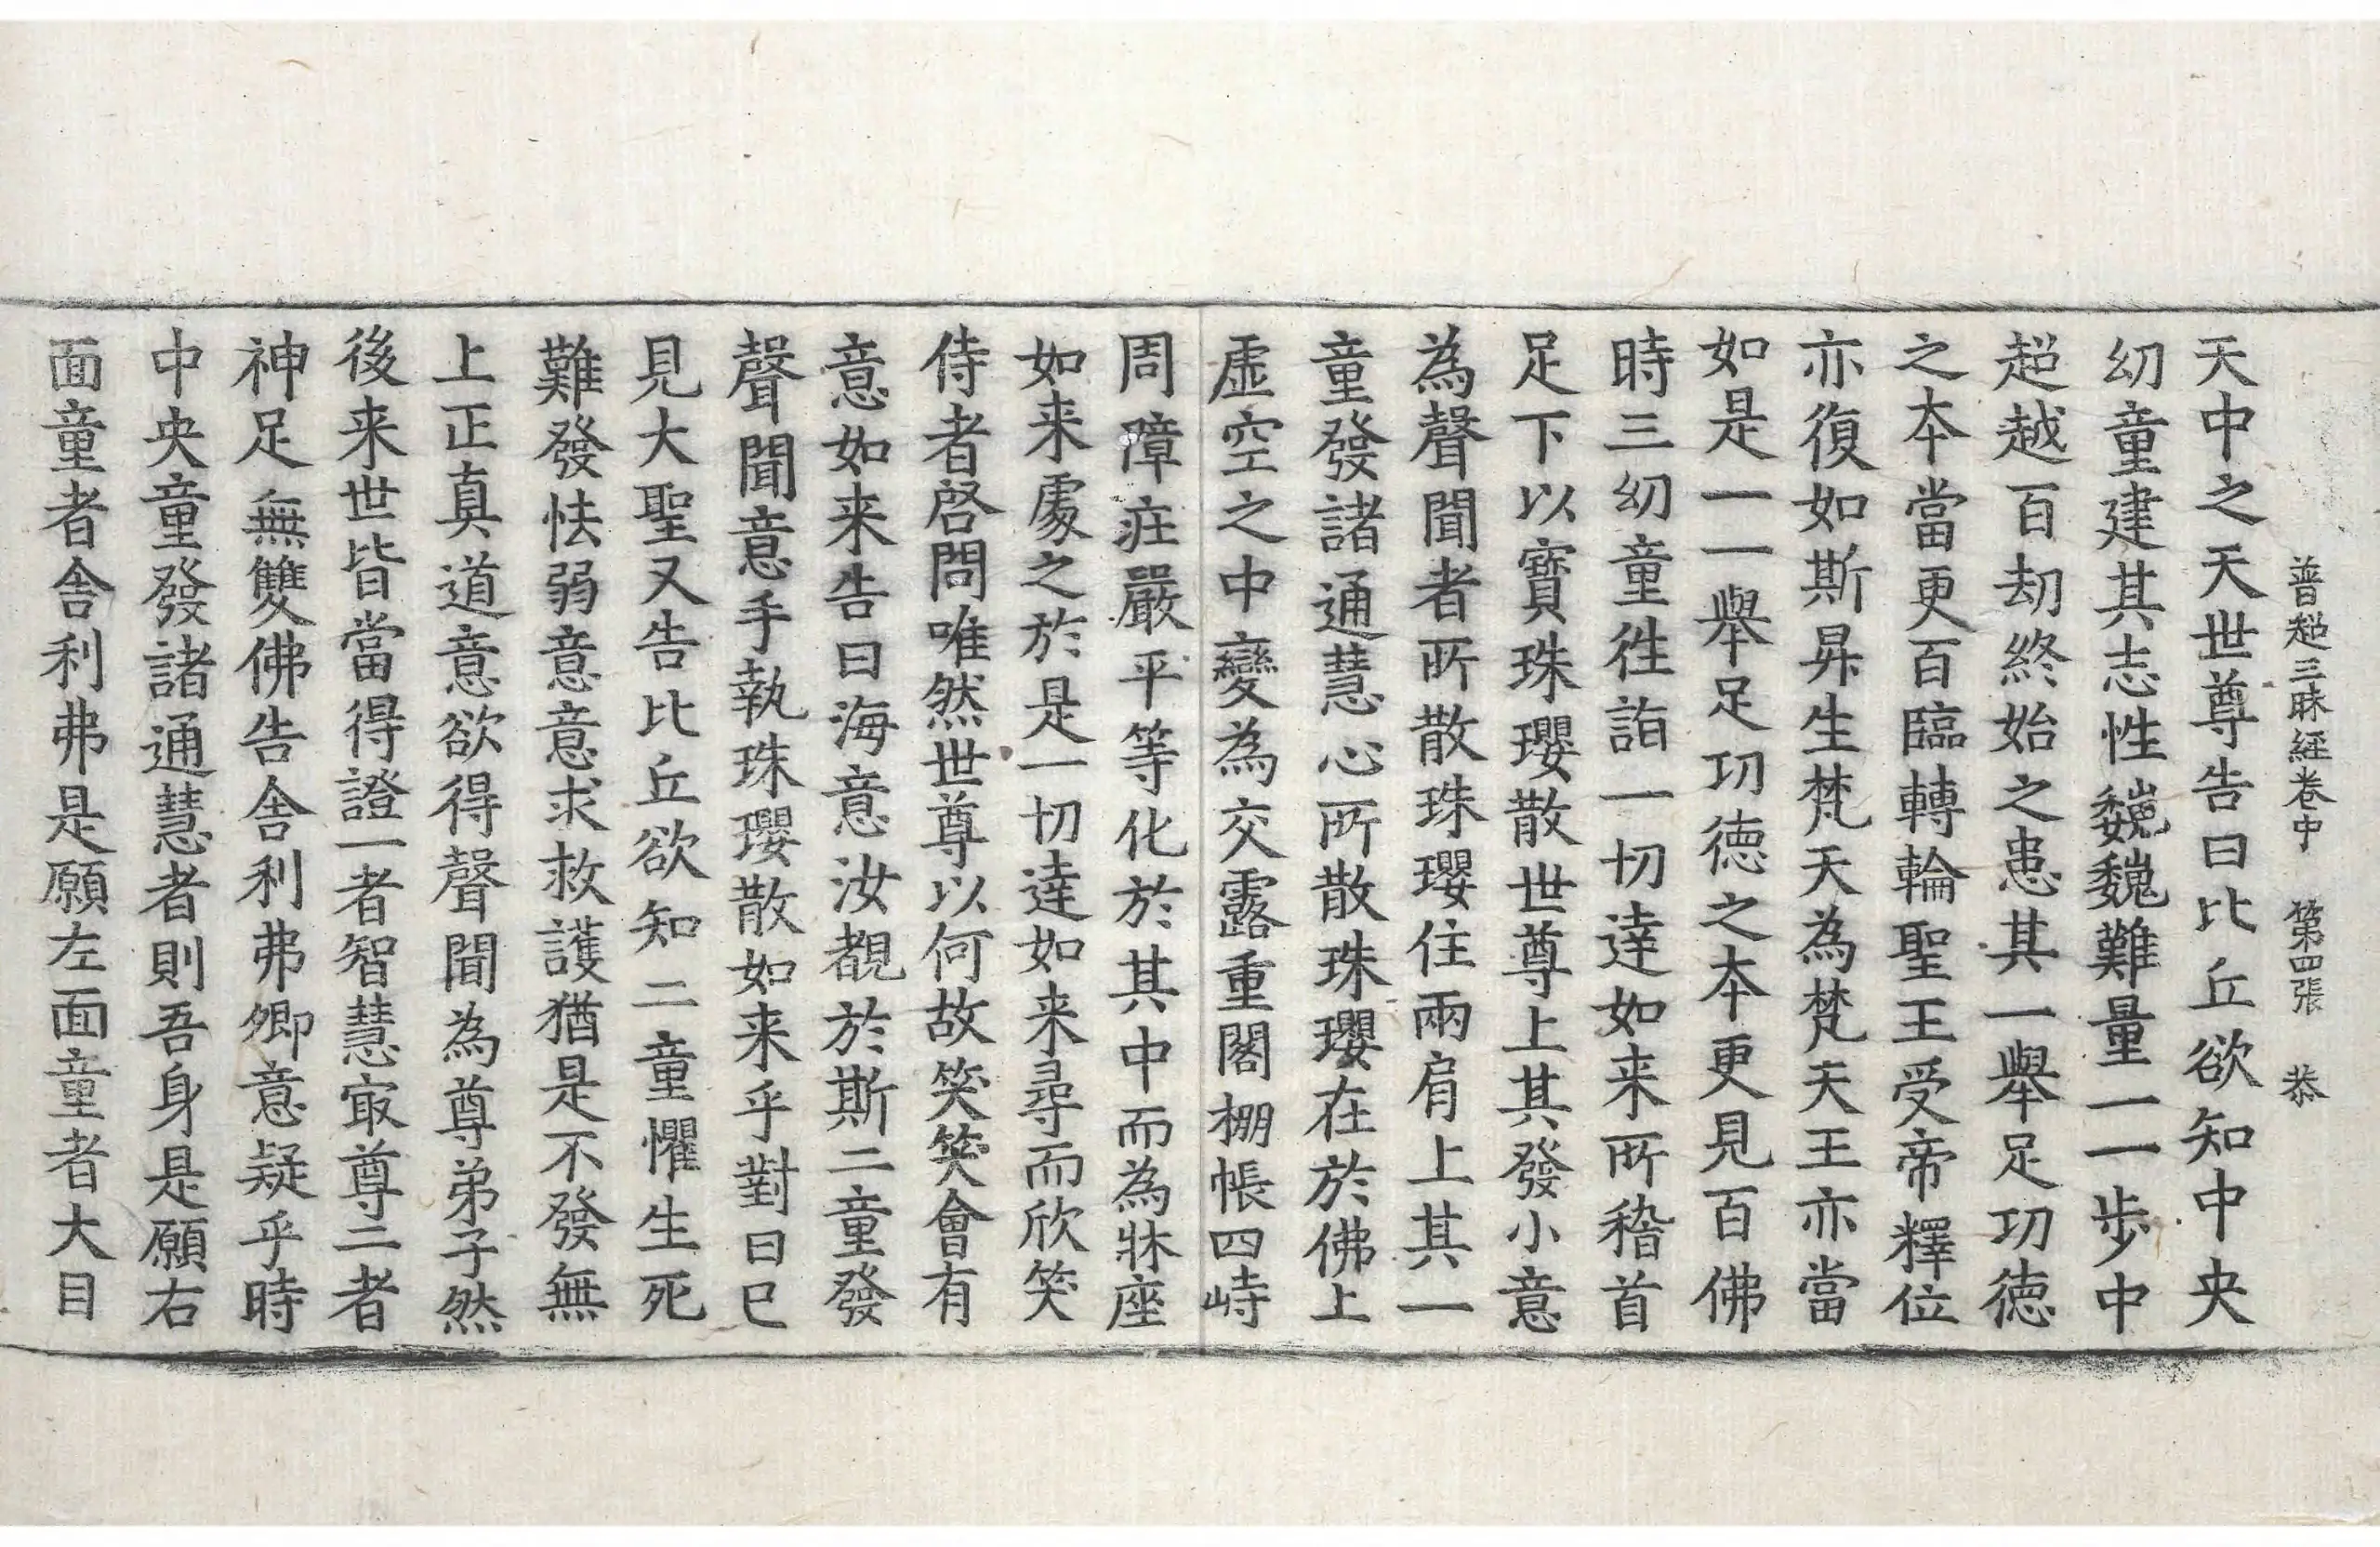 普超三昧經卷中　第四張　恭
天中之天世尊告曰比丘欲知中央
幼童建其志性巍巍難量一一步中
超越百劫終始之患其一舉足功德
之本當更百臨轉輪聖王受帝釋位
亦復如斯昇生梵天為梵天王亦當
如是一一舉足功德之本更見百佛
時三幼童徃詣一切達如来所稽首
足下以寶珠瓔散世尊上其發小意
為聲聞者所散珠瓔住兩肩上其一
童發諸通慧心所散珠瓔在於佛上
虛空之中變為交露重閣棚帳四峙
周障庄嚴平等化於其中而為牀座
如来處之於是一切達如来尋而欣笑
侍者啓問唯然世尊以何故笑笑會有
意如来告曰海意汝覩於斯二童發
聲聞意手執珠瓔散如来乎對曰已
見大聖又告比丘欲知二童懼生死
難發怯弱意意求救護猶是不發無
上正真道意欲得聲聞為尊弟子然
後来世皆當得證一者智慧㝡尊二者
神足無雙佛告舎利弗卿意疑乎時
中央童發諸通慧者則吾身是願右
面童者舎利弗是願左面童者大目